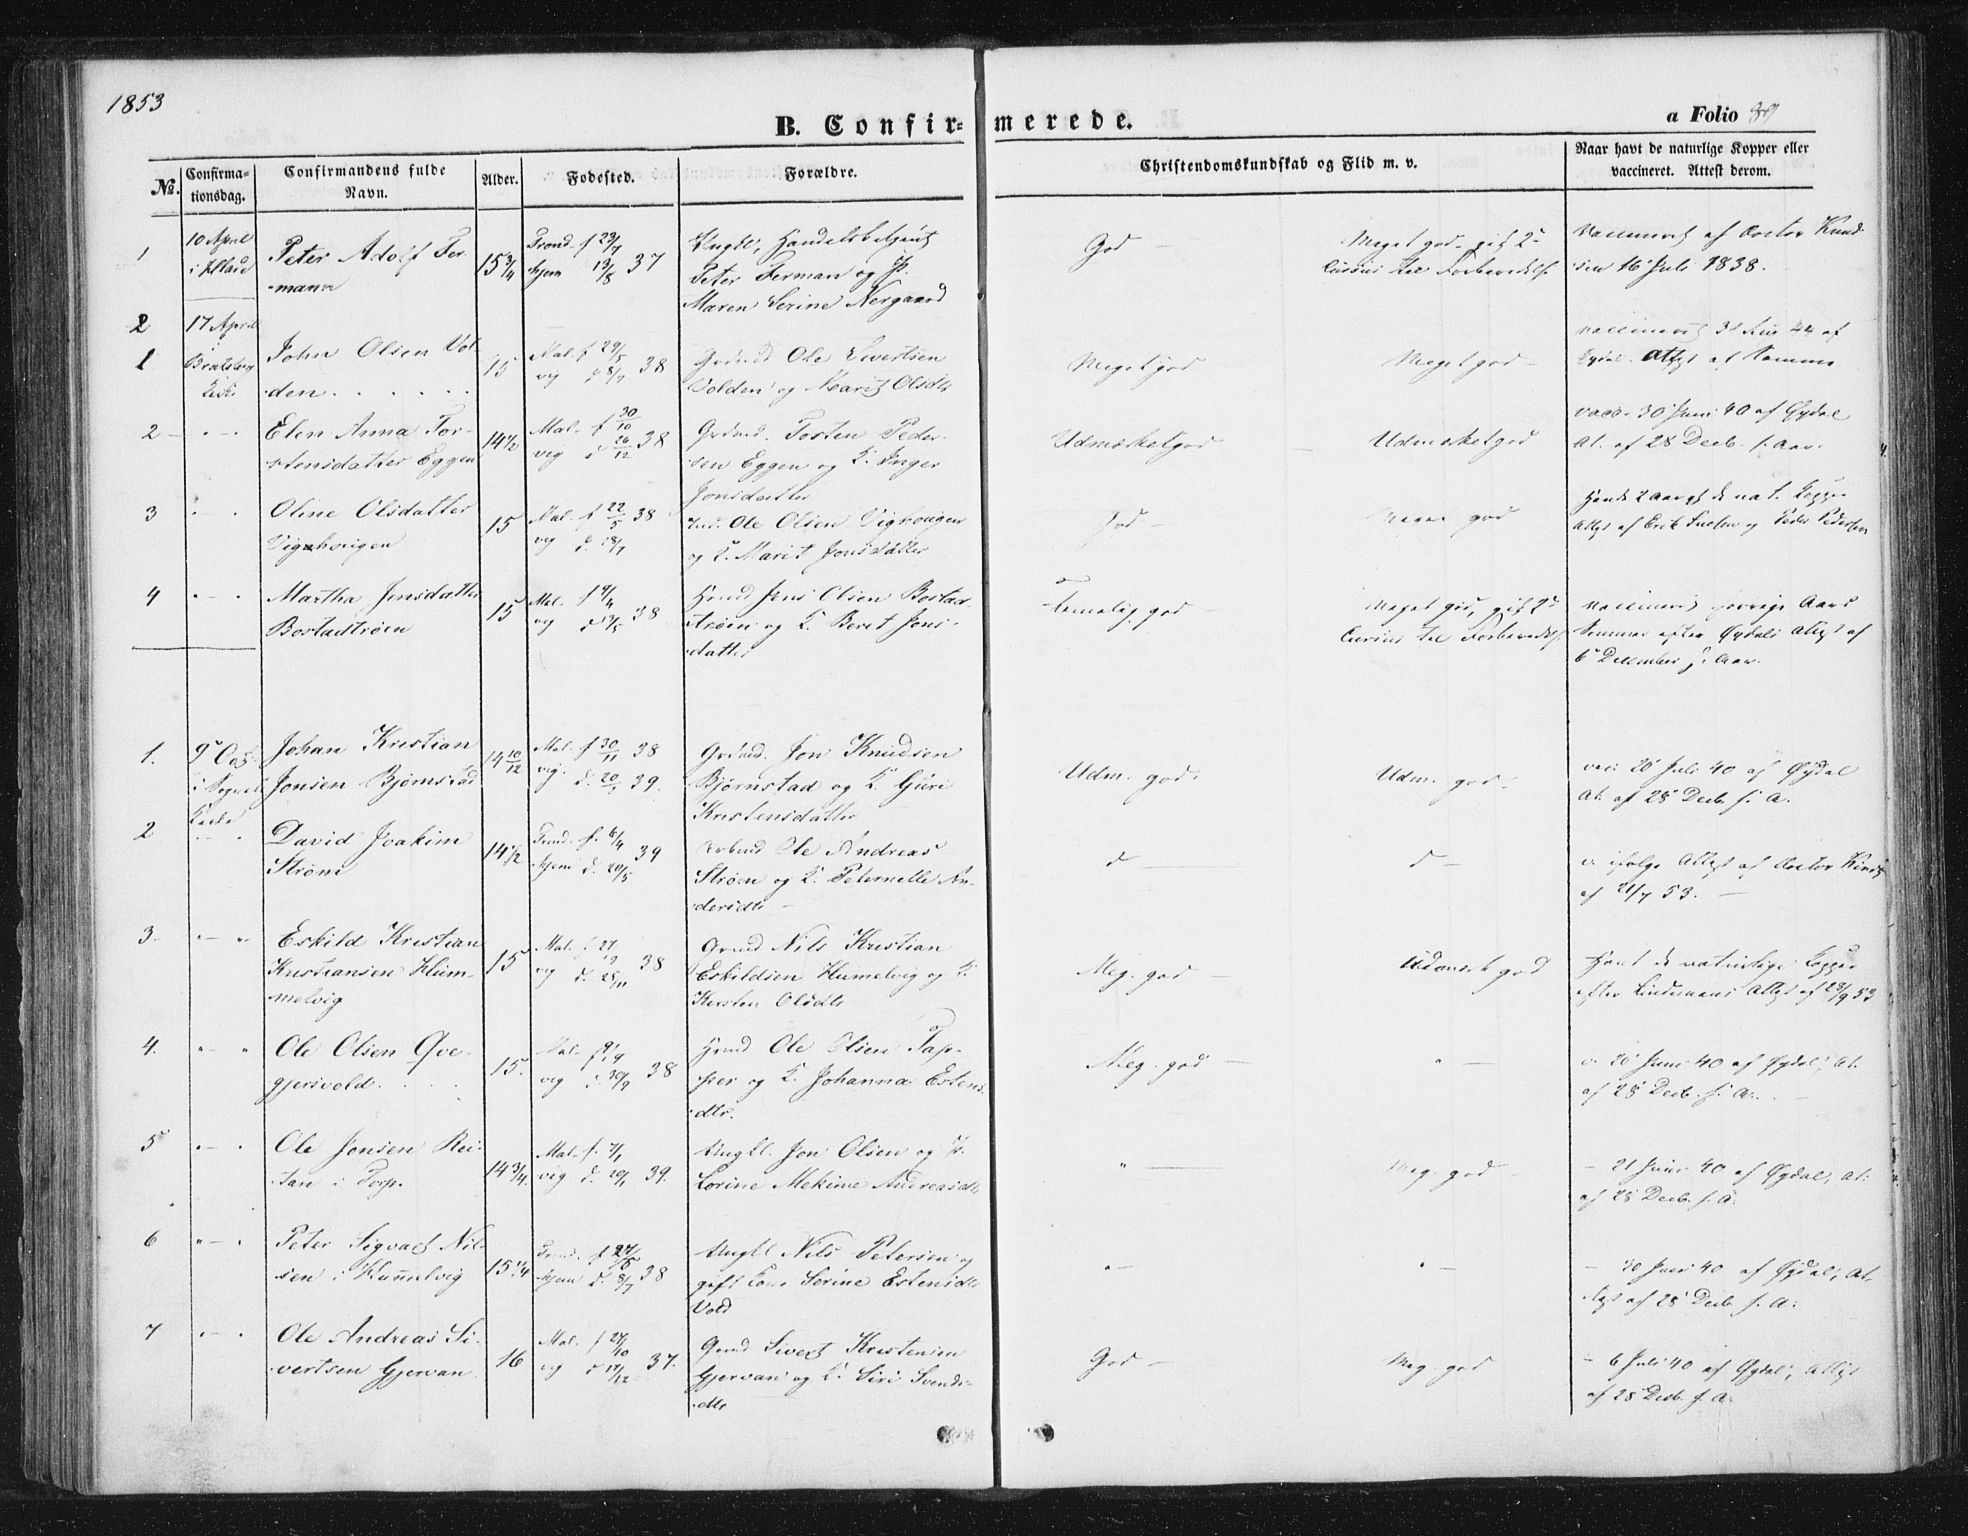 1853
B. Confir- merede.
a Folio
No.
Confirma-
tionsdag.
Confirmandens fulde
Navn.
Alder.
Fødested.
Forældre.
Christendomskundskab og Flid m. v.
Naar havt de naturlige Kopper eller
vaccineret. Attest derom.
1
10 April
Peter Adolf Fer-
mann
15 3/4
Trond- f 23/7
hjem 13/8 37
Ungkl, Handelsbetjent
Peter Ferman og P.
Maren Serine Nergaard
God —
Meget god
Cursus til Forberedels.
Vaccineret af Doctor Knud-
sen 16 Juli 1838.
2
17 April
1
Bratsberg
Kirke
John Olsen Vol-
den . . . . . .
15
Mal- f 29/5
vig d 8/7 38
Grdmd Ole Sivertsen
Volden og Marit Olsdtr
Meget god
Meget god —
Attest af Samme
2
Elen Anna Tor-
stensdatter Eggen
14 1/2
Mal- f 30/10
vig d 26/12 38
Grdmd. Tosten Peder-
sen Eggen og K. Inger
Jonsdatter
Udmærket god
Udmærket god
vacc. 30 Juni 40 af Øydal
At. af 28 Decb. s. Aar.
3
Oline Olsdatter
Vigshougen
15
Mal- f 22/5 38
vig d. 8/7
Ind. Ole Olsen Vighougen
og K. Marit Jonsdatter
God —
Meget god
Havt 2 Aar gl de nat. Kopper
Attest af Erik og Peder Pedersen
4
Martha Jensdatter
Bostadtrøen
15
Mal- f 9/4
vig d 13/5 38
Hmd Jens Olsen Bostad-
trøen og K. Beret Jons-
datter
Temelig god
Meget god,
Cursus til Forberedels.
Vaccineret forrige Aars
Sommer efter Øydals Attest af
6 December s. Aar.
1.
9 Oct.
Kirke
Johan Kristian
Jonsen Bjørnstad
14 10/12
Mal- f 30/11 38
vig. d. 20/1 39.
Grdmd. Jon Knudsen
Bjørnstad og K. Guri
Kristensdatter
Udm. god.
Udm. god.
vac. 20 Juli 40 af Øydal
At. af 28 Decb. s. A.
2
David Joakim
Strøm
14 1/2
Trond- f. 6/4
hjem d. 20/5 39
Ole Andreas
Strøm og K. Peternelle An-
dersdtr —
d —
d —
v. ifølge Attest af Doctor
af 21/7 53. —
3.
Eskild Kristian
Kristiansen Hum-
melvig
15
Mal- f 27/9
vig d. 25/11 38
Grmd Nils Kristian
Eskildsen Humelvig og K.
Kirsten Olsdtr
Meg. god —
Udmærk god
Havt de naturlige Kopper
efter Lindemans Attest af 28/9 53
4.
Ole Olsen Qve-
gjersvold. . . .
15.
Mal-
vig d. 30/9 38
Hmd Ole Olsen Tap-
per og K. Johanna Estens-
dtr.
Meg. god —
" —
v. 20 Juni 40 af Øydal, At.
af 28 Decb. s. A. —
5
Ole Jonsen Rei-
tan i Torp.
14 3/4.
Mal- f. 7/1
vig d. 20/1 39.
Ungkl. Jon Olsen og P.
Lorine Mekine Andreasdtr
" —
Meg. god —
— 21 Juni 40 af Øydal, At.
af 28 Decb. s. A.
6
Peter Sigvart Nil-
sen i Hummelvig
15 1/4
Trond- f 27/5
hjem d. 8/7 38
Ungkl Nils Petersen og
gift Kone Serine Estensdtr
Vold
" —
" —
— 30 Juni 40 af Øydal, At-
test af 28 Decb. s. A.
7
Ole Andreas Si-
vertsen Gjervan
16
Mal- f 27/10
vig d 17/12 37.
Grmd Sivert Kristensen
Gjervan og K. Siri Svends-
dtr
God —
Meg. god
— 6 Juli 40 af Øydal, Attest
af 28 Decb. s. A.